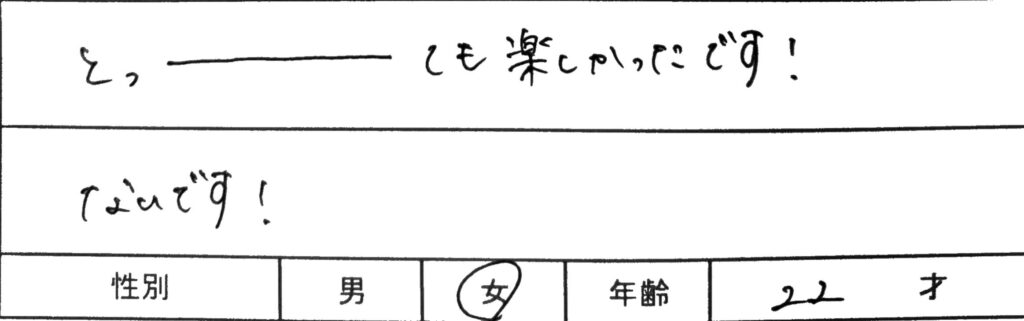 とっ――――ても楽しかったです!
ないです!
性別 男 女 年齢 22 才